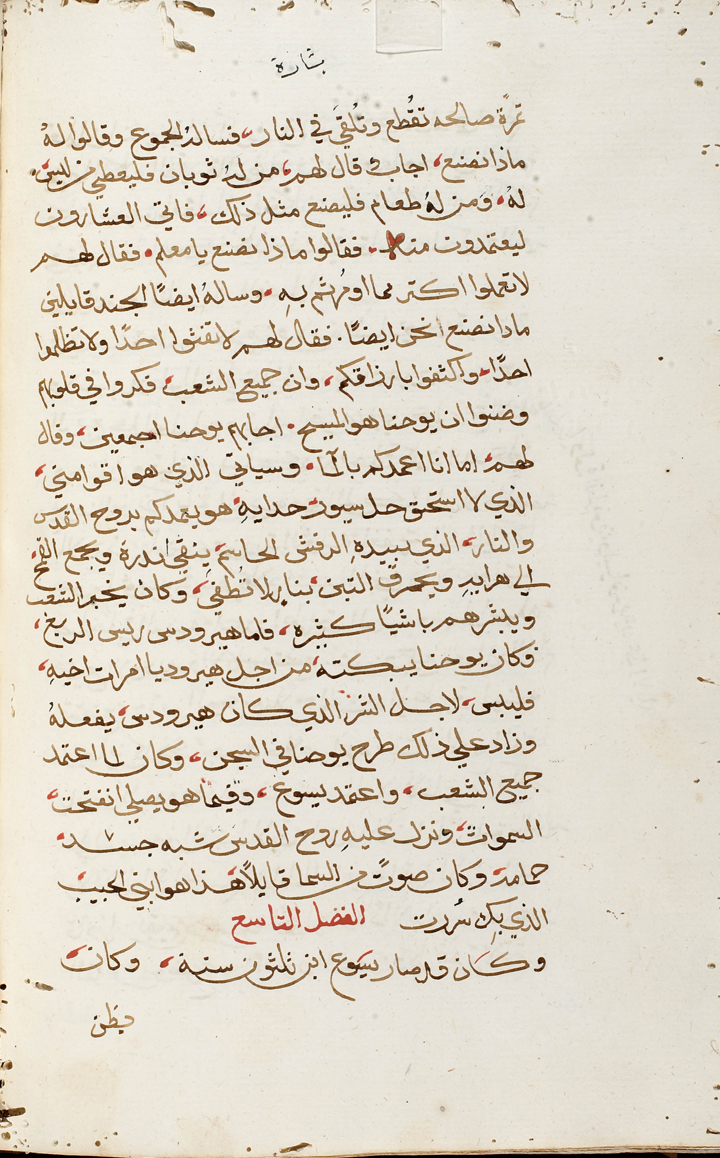 بشارة
ثمرةً صالحه تقُطع وتُلقيَ في النار، فسالهُ الجموع وقالوا لهُ
ماذا نصنع، اجاب قال لهم، من لهُ ثوبان فليعطي من ليس
لهُ، ومن لهُ طعام فليصنع مثل ذلك، فاتي العشارون
ليعتمدوت منه فقالوا ماذا نصنع يا معلم، فقال لهم
لاتعملوا اكتر مما اومُرتم بهِ، وسالهُ ايضًا الجند قايلين
ماذا نصنع نحن ايضًا. فقال لهم لاتعنتوا احدًا ولا تظلموا
احدًا، واكتفوا بارزاقكم، وان جميع الشعب فكروا في قلوبهم
وضنوا ان يوحنا هو المسيح، اجابهم يوحنا اجمعين، وقال
لهم، اما انا اعمدكم بالما، وسياتي الذي هو اقوا مني،
الذي لا استحق حل سيور حدايهِ، هو يعمدكم بروح القدس
والنار، الذي بيدهِ الرفش الحاسم، ينقي اندرهُ ويجمع القمح
الي هرايهِ ويحرق التبن، بنار لا تُطفيَ، وكان يخبر الشعب
ويبشرهم باشيًا كثيره، فاما هيرودس ريس الربع،
فكان يوحنا يبكته، من اجل هيروديا امرات اخيهِ،
فيلبس، لاجل الشر الذي كان هيرودس، يفعلهُ
وزاد علي ذلك طرح يوحنا في السجن، وكان لما اعتمد
جميع الشعب، واعتمد يسوع، وفيما هو يصلي انفتحت،
السموات، ونزل عليهِ روح القدس شبه جسد،
حمامه، وكان صوت من السما قايلاً، هذا هو ابني الحبيب
الذي بكِ سُررت الفصل التاسع
وكان قد صار يسوع ابن ثلثون سنة، وكان،
يظن